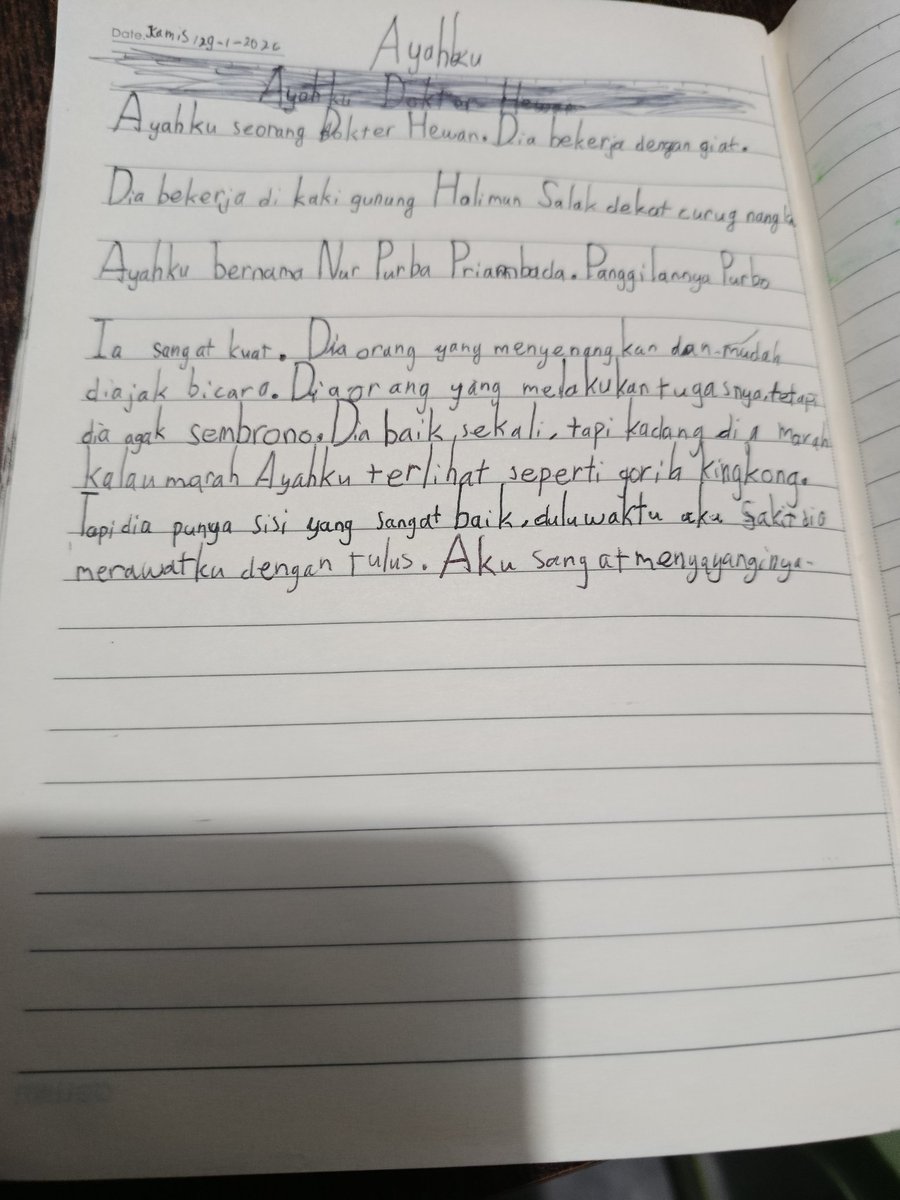 Date. Kamis, 29-1-2026
Ayahku
Ayahku Dokter Hewan
Ayahku seorang Dokter Hewan. Dia bekerja dengan giat.
Dia bekerja di kaki gunung Halimun Salak dekat curug nangka
Ayahku bernama Nur Purba Priambada. Panggilannya Purbo
Ia sangat kuat. Dia orang yang menyenangkan dan mudah
diajak bicara. Dia orang yang melakukan tugasnya, tetapi
dia agak sembrono. Dia baik sekali, tapi kadang dia marah
kalau marah Ayahku terlihat seperti gorila kingkong.
Tapi dia punya sisi yang sangat baik, dulu waktu aku sakit dia
merawatku dengan tulus. Aku sangat menyayanginya.